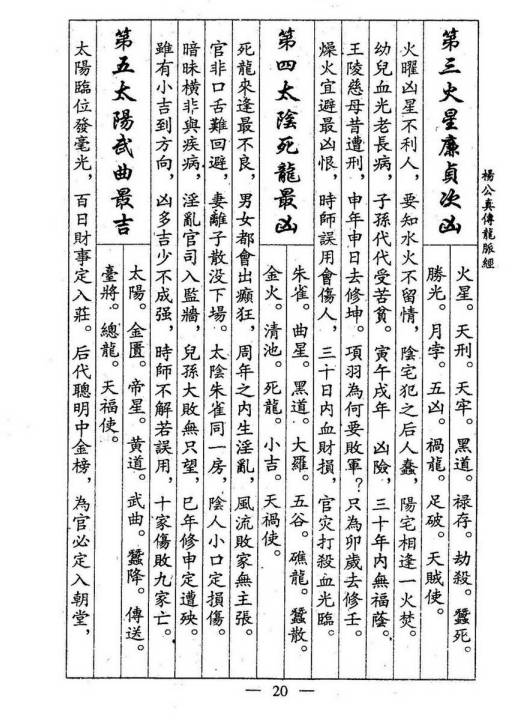 楊公真傳龍脈經
第三火星廉貞次凶
火星。天刑。天牢。黑道。禄存。劫殺。蠶死。
勝光。月孛。五凶。禍龍。足破。天賊使。
火曜凶星不利人，要知水火不留情，陰宅犯之后人蠢，陽宅相逢一火焚。
幼兒血光老長病，子孫代代受苦貧。寅午戌年　凶險，三十年內無福蔭。
王陵慈母昔遭刑，申年申日去修坤。項羽為何要敗軍？只為卯歲去修壬。
燥火宜避最凶恨，時師誤用會傷人，三十日內血財損，官灾打殺血光臨。
第四太陰死龍最凶
朱雀。曲星。黑道。大羅。五谷。礁龍。蠶散。
金火。清池。死龍。小吉。天禍使。
死龍來逢最不良，男女都會出癲狂，周年之內生淫亂，風流敗家無主張。
官非口舌難回避，妻離子散没下場。太陰朱雀同一房，陰人小口定損傷。
暗昧橫非與疾病，淫亂官司入監牆，兒孫大敗無只望，巳年修申定遭殃。
雖有小吉到方向，凶多吉少不成强，時師不解若誤用，十家傷敗九家亡。
第五太陽武曲最吉
太陽。金匱。帝星。黄道。武曲。蠶降。傳送。
臺將。總龍。天福使。
太陽臨位發毫光，百日財事定入莊。后代聰明中金榜，為官必定入朝堂，
— 20 —